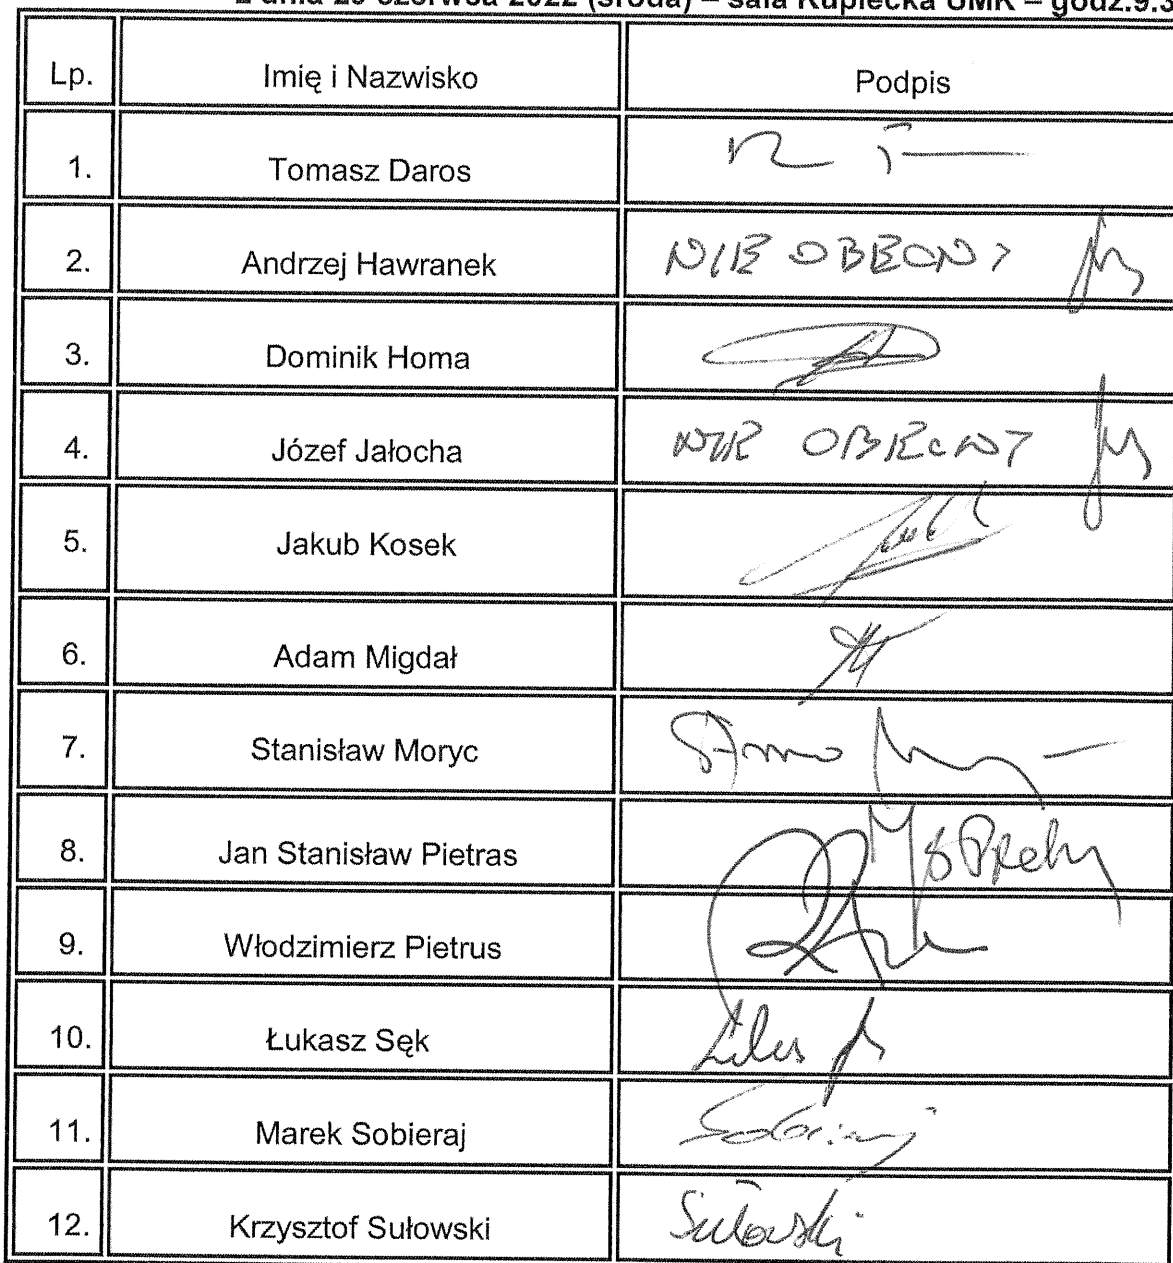 z dnia 29 czerwca 2022 (środa) – sala Kupiecka UMK – godz.9.3
Lp. Imię i Nazwisko Podpis
1. Tomasz Daros
2. Andrzej Hawranek NIE OBECNY
3. Dominik Homa
4. Józef Jałocha NIE OBECNY
5. Jakub Kosek
6. Adam Migdał
7. Stanisław Moryc
8. Jan Stanisław Pietras
9. Włodzimierz Pietrus
10. Łukasz Sęk
11. Marek Sobieraj Sobieraj
12. Krzysztof Sułowski Sułowski